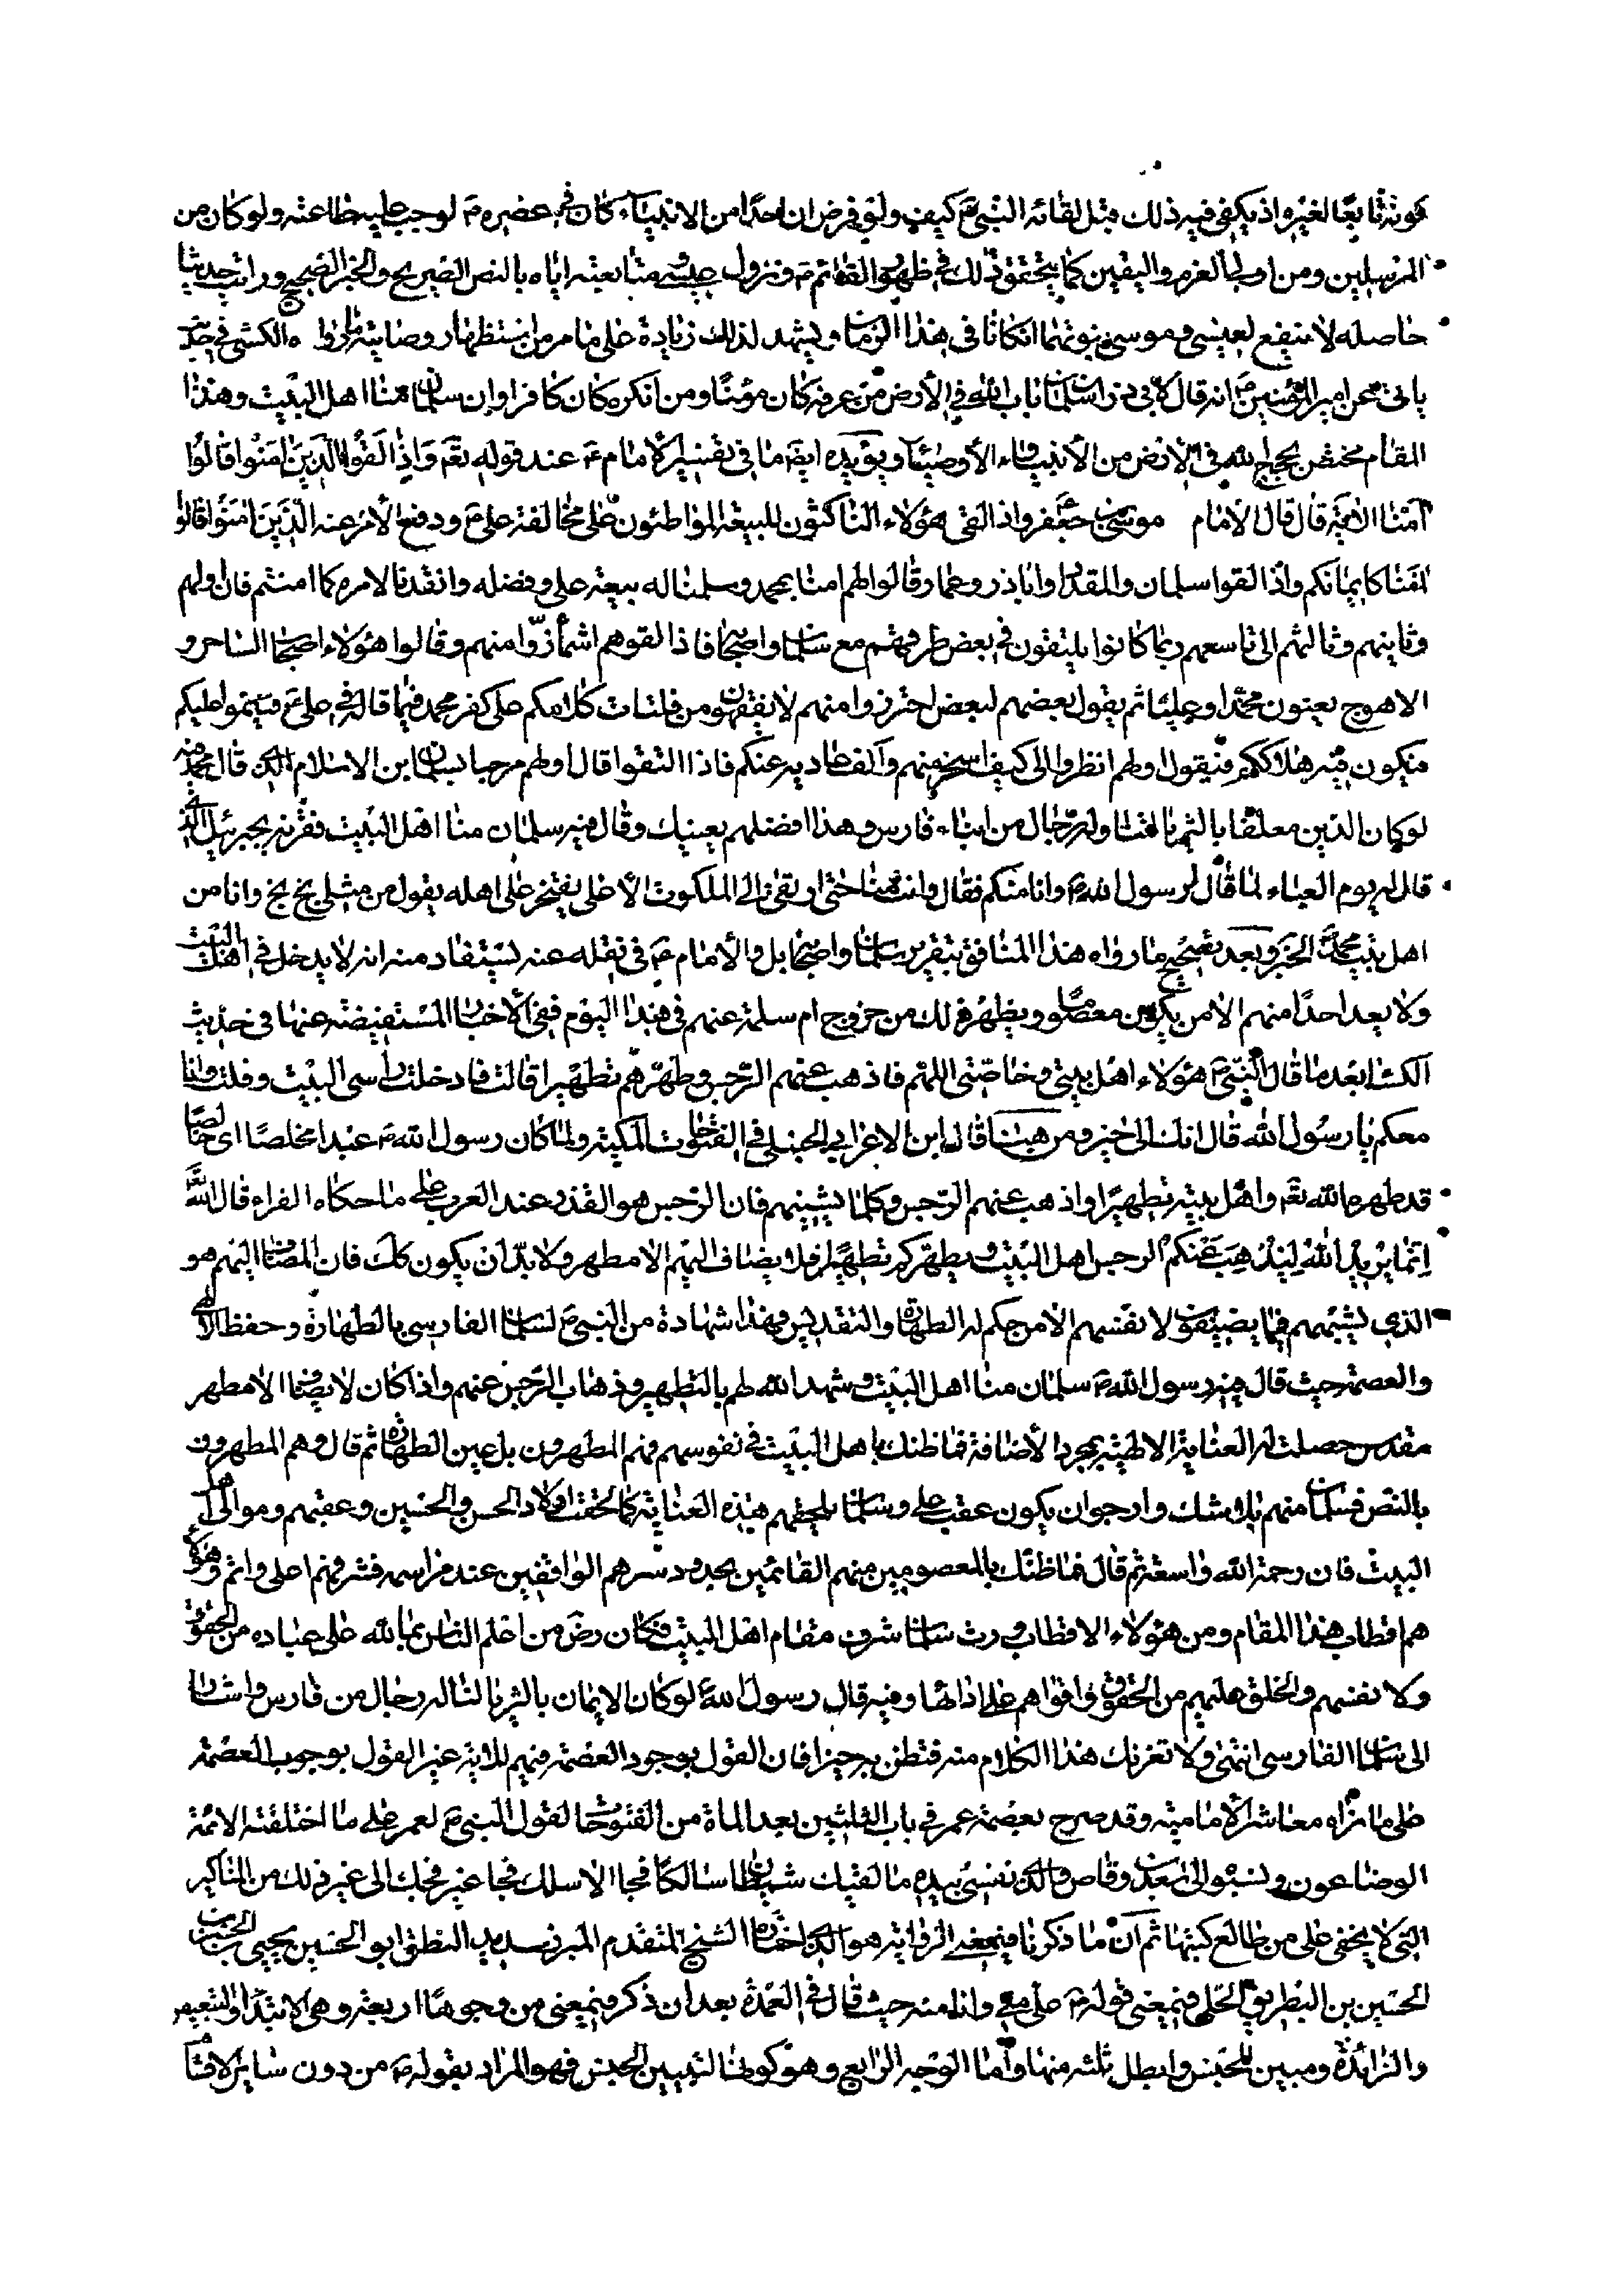 كونه تابعًا لغيره اذ يكفى فيه ذلك مثل لقائه النبىّ ص كيف ولو فرض ان احدًا من الانبياء كان فى عصره ص لوجب عليه طاعته ولو كان من
المرسلين ومن اولى العزم واليقين كما يتحقق ذلك فى ظهور القائم ع ونزول عيسى ومتابعته اياه بالنص الصريح والخبر الصحيح ورايت حديثا
حاصله لا ينفع لعيسى وموسى نبوتهما ان كانا فى هذا الزمان ويشهد لذلك زيادة على ما مر من استظهار وصايته ما رواه الكشى فى حديث
ياتى عن امير المؤمنين ع انه قال لابى ذر ان سلمان باب الله فى الأرض من عرفه كان مؤمنًا ومن انكره كان كافرا وان سلمان منّا اهل البيت وهذا
المقام مختص بحجج الله فى الأرض من الأنبياء والأوصياء ويؤيده ايضا ما فى تفسير الامام ع عند قوله تعّ وَاِذا لَقُوا الَّذينَ امَنُوا قالُوا
آمَنّا الآية قال قال الامام موسى بن جعفر واذا لقى هؤلاء الناكثون للبيعة المواطئون على مخالفة على ع ودفع الأمر عنه الَّذينَ امَنُوا قالوا
امَنّا كايمانكم واذا لقوا سلمان والمقداد وابا ذر وعمار وقالوا لهم امنا بمحمد وسلمنا له بيعة على وفضله وانقدنا لامره كما امنتم فان اولهم
وثانيهم وثالثهم الى تاسعهم ربما كانوا يلتقون فى بعض طرقهم مع سلمان واصحابه فاذا لقوهم اشمأزّوا منهم وقالوا هؤلاء اصحاب الساحر و
الاهوج يعنون محمّدا وعليّا ثم يقول بعضهم لبعض احترزوا منهم لا يقفون من فلتات كلامكم على كفر محمد فيما قاله فى على ع فينموا عليكم
فيكون فيه هلاككم فيقول اولهم انظروا الى كيف اسخر منهم واكف عاديتهم عنكم فاذا التقوا قال اولهم مرحبا بسلمان ابن الاسلام الذى قال محمد فيه
لو كان الدين معلقا بالثريا لتناوله رجال من ابناء فارس وهذا افضلهم يعنيك وقال فيه سلمان منا اهل البيت فقرنه بجبرئيل الذى
قال له يوم العباء لما قال لرسول الله ص وانا منكم فقال وانت منا حتى ارتقى الى الملكوت الأعلى يفتخر على اهله يقول من مثلى بخ بخ وانا من
اهل بيت محمد ص الخبر وبعد تصحيح ما رواه هذا المنافق بتقرير سلمان واصحابه بل والامام ع فى نقله عنه يستفاد منه انه لا يدخل فى اهل البيت
ولا يعد احدًا منهم الا من يكون معصومًا ويظهر ذلك من خروج ام سلمة عنهم فى هذا اليوم ففى الأخبار المستفيضة عنها فى حديث
الكساء بعد ما قال النبىّ ص هؤلاء اهل بيتى وخاصّتى اللهم فاذهب عنهم الرّجس وطهّرهم تطهيرًا قالت فادخلت راسى البيت وقلت وانا
معكم يا رسول الله قال انك الى خير ومن هنا قال ابن الاعرابى الحنبلى فى الفتوحات المكية ولما كان رسول الله ص عبدا مخلصًا اى خالصًا
قد طهره الله تعّ واهل بيته تطهيرًا واذهب عنهم الرّجس وكلما يشينهم فان الرّجس هو القذر عند العرب على ما حكاه الفراء قال الله تعّ
اِنَّما يُريدُ اللهُ لِيُذْهِبَ عَنْكُم الرجس اهل البيت ويطهركم تطهيرًا فلا يضاف اليهم الا مطهر ولا بدّ ان يكون كك فان المضاف اليهم هو
الذى يشبههم فما يضيفون لانفسهم الا من حكم له الطهارة والتقديس فهذا شهادة من النبىّ ص لسلمان الفارسى بالطهارة وحفظ الالهى
والعصمة حيث قال فيه رسول الله ص سلمان منا اهل البيت وشهد الله لهم بالتطهير وذهاب الرّجس عنهم واذا كان لا يضاف الا مطهر
مقدس حصلت له العناية الالهية بمجرد الأضافة فما ظنك باهل البيت فى نفوسهم فهم المطهرون بل عين الطهارة ثم قال وهم المطهرون
بالنص فسلمان منهم بلا شك وارجو ان يكون عقب على وسلمان يلحقهم هذه العناية كما لحقت اولاد الحسن والحسين وعقبهم وموالى اهل
البيت فان رحمة الله واسعة ثم قال فما ظنّك بالمعصومين منهم القائمين بحدود سيدهم الواقفين عند مراسمه فشرفهم اعلى واتم وهؤلاء
هم اقطاب هذا المقام ومن هؤلاء الاقطاب ورث سلمان شرف مقام اهل البيت فكان رض من اعلم الناس بما لله على عباده من الحقوق
ولا نفسهم والخلق عليهم من الحقوق واقواهم على ادائها وفيه قال رسول الله ص لو كان الايمان بالثريا لناله رجال من فارس واشار
الى سلمان الفارسى انتهى ولا تغرنك هذا الكلام منه فتظن به خيرا فان القول بوجود العصمة فيهم للاية غير القول بوجوب العصمة
على ما نراه معاشر الامامية وقد صرح بعصمة عمر فى باب الثلثين بعد المأة من الفتوحات لقول النبى ص لعمر على ما اختلقته الائمة
الوضاعون ونسبوه الى سعد بن وقاص والذى نفسى بيده ما لقيك شيطان سالكا فجا الا سلك فجا غير فجك الى غير ذلك من المناكير
التى لا يخفى على من طالع كتبها ثم ان ما ذكرنا فى معنى الرواية هو الذى اختاره الشيخ المتقدم المبرز سديد النطق ابو الحسين يحيى بن الحسن بن
الحسين بن البطريق الحلى فى معنى قوله ص على منى وانا منه حيث قال فى العمدة بعد ان ذكر فى معنى من وجوها اربعة وهى الابتداء والتبعيض
والزائدة ومبين للجنس وابطل ثلثه منها واما الوجه الرابع وهو كونها لتبيين الجنس فهو المراد بقوله ص من دون ساير الاقسام